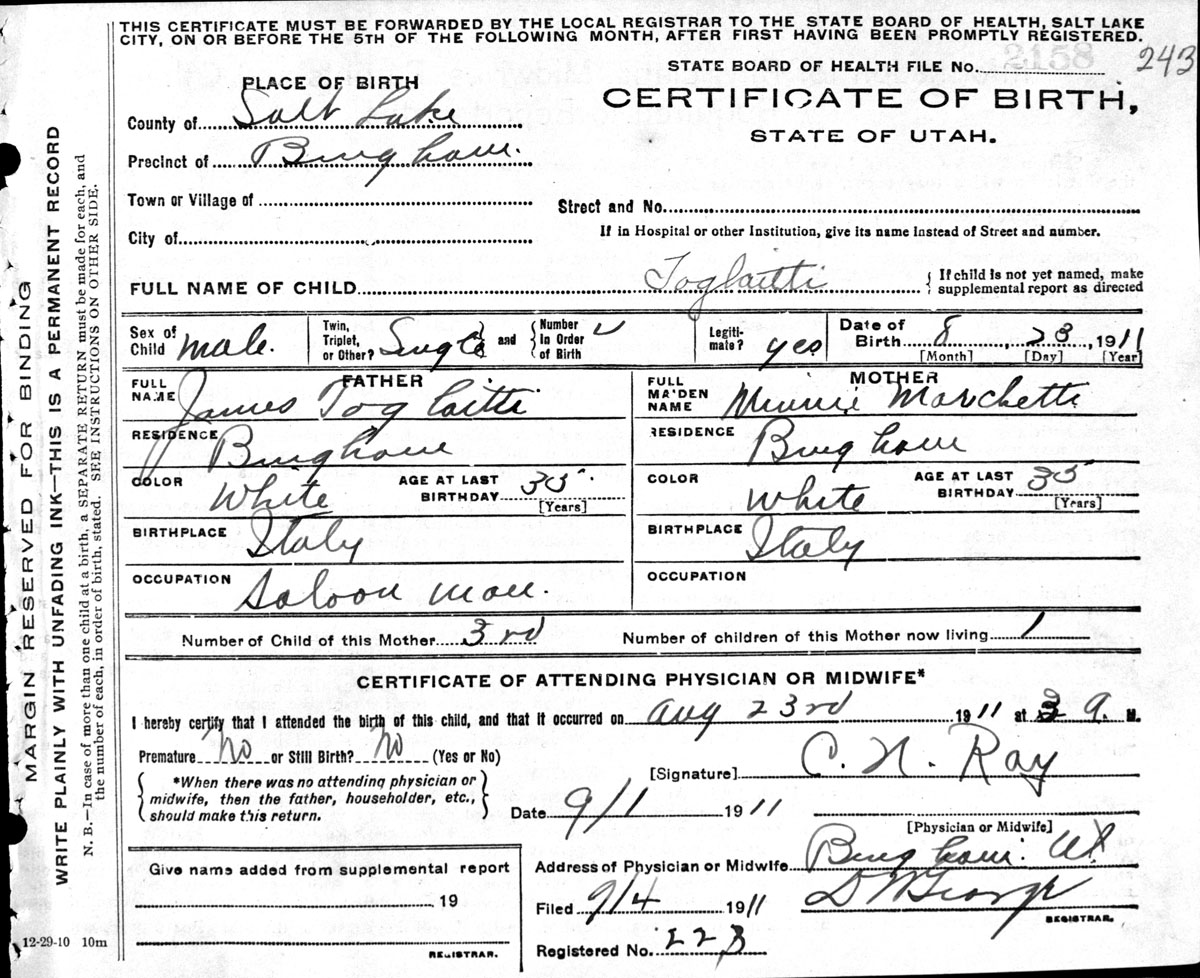 THIS CERTIFICATE MUST BE FORWARDED BY THE LOCAL REGISTRAR TO THE STATE BOARD OF HEALTH, SALT LAKE
CITY, ON OR BEFORE THE 5TH OF THE FOLLOWING MONTH, AFTER FIRST HAVING BEEN PROMPTLY REGISTERED.
2158
243
STATE BOARD OF HEALTH FILE No.
PLACE OF BIRTH
CERTIFICATE OF BIRTH,
STATE OF UTAH.
County of Salt Lake
Precinct of Bingham.
Town or Village of
Street and No.
City of
If in Hospital or other Institution, give its name instead of Street and number.
FULL NAME OF CHILD Toglaitti
If child is not yet named, make
supplemental report as directed
Sex of
Child male.
Twin,
Triplet,
or Other? Single
and
Number
In Order
of Birth
Legiti-
mate? yes
Date of
Birth 8, 23, 1911
[Month] [Day] [Year]
FATHER
FULL
NAME James Toglaitti
MOTHER
FULL
MAIDEN
NAME Minnie Marchetti
RESIDENCE Bingham
RESIDENCE Bingham
COLOR White
AGE AT LAST
BIRTHDAY 35
[Years]
COLOR White
AGE AT LAST
BIRTHDAY 35
[Years]
BIRTHPLACE Italy
BIRTHPLACE Italy
OCCUPATION Saloon man.
OCCUPATION
Number of Child of this Mother 3rd
Number of children of this Mother now living 1
CERTIFICATE OF ATTENDING PHYSICIAN OR MIDWIFE*
I hereby certify that I attended the birth of this child, and that it occurred on Aug 23rd 1911 at 9 M.
Premature No or Still Birth? No (Yes or No)
*When there was no attending physician or
midwife, then the father, householder, etc.,
should make this return.
[Signature] C. N. Ray
Date 9/1 1911
[Physician or Midwife]
Address of Physician or Midwife Bingham. Ut
Filed 9/4 1911 D W George
REGISTRAR.
Registered No. 223
Give name added from supplemental report
19
REGISTRAR.
12-29-10 10m
MARGIN RESERVED FOR BINDING
WRITE PLAINLY WITH UNFADING INK—THIS IS A PERMANENT RECORD
N. B.—In case of more than one child at a birth, a SEPARATE RETURN must be made for each, and
the number of each, in order of birth, stated. SEE INSTRUCTIONS ON OTHER SIDE.